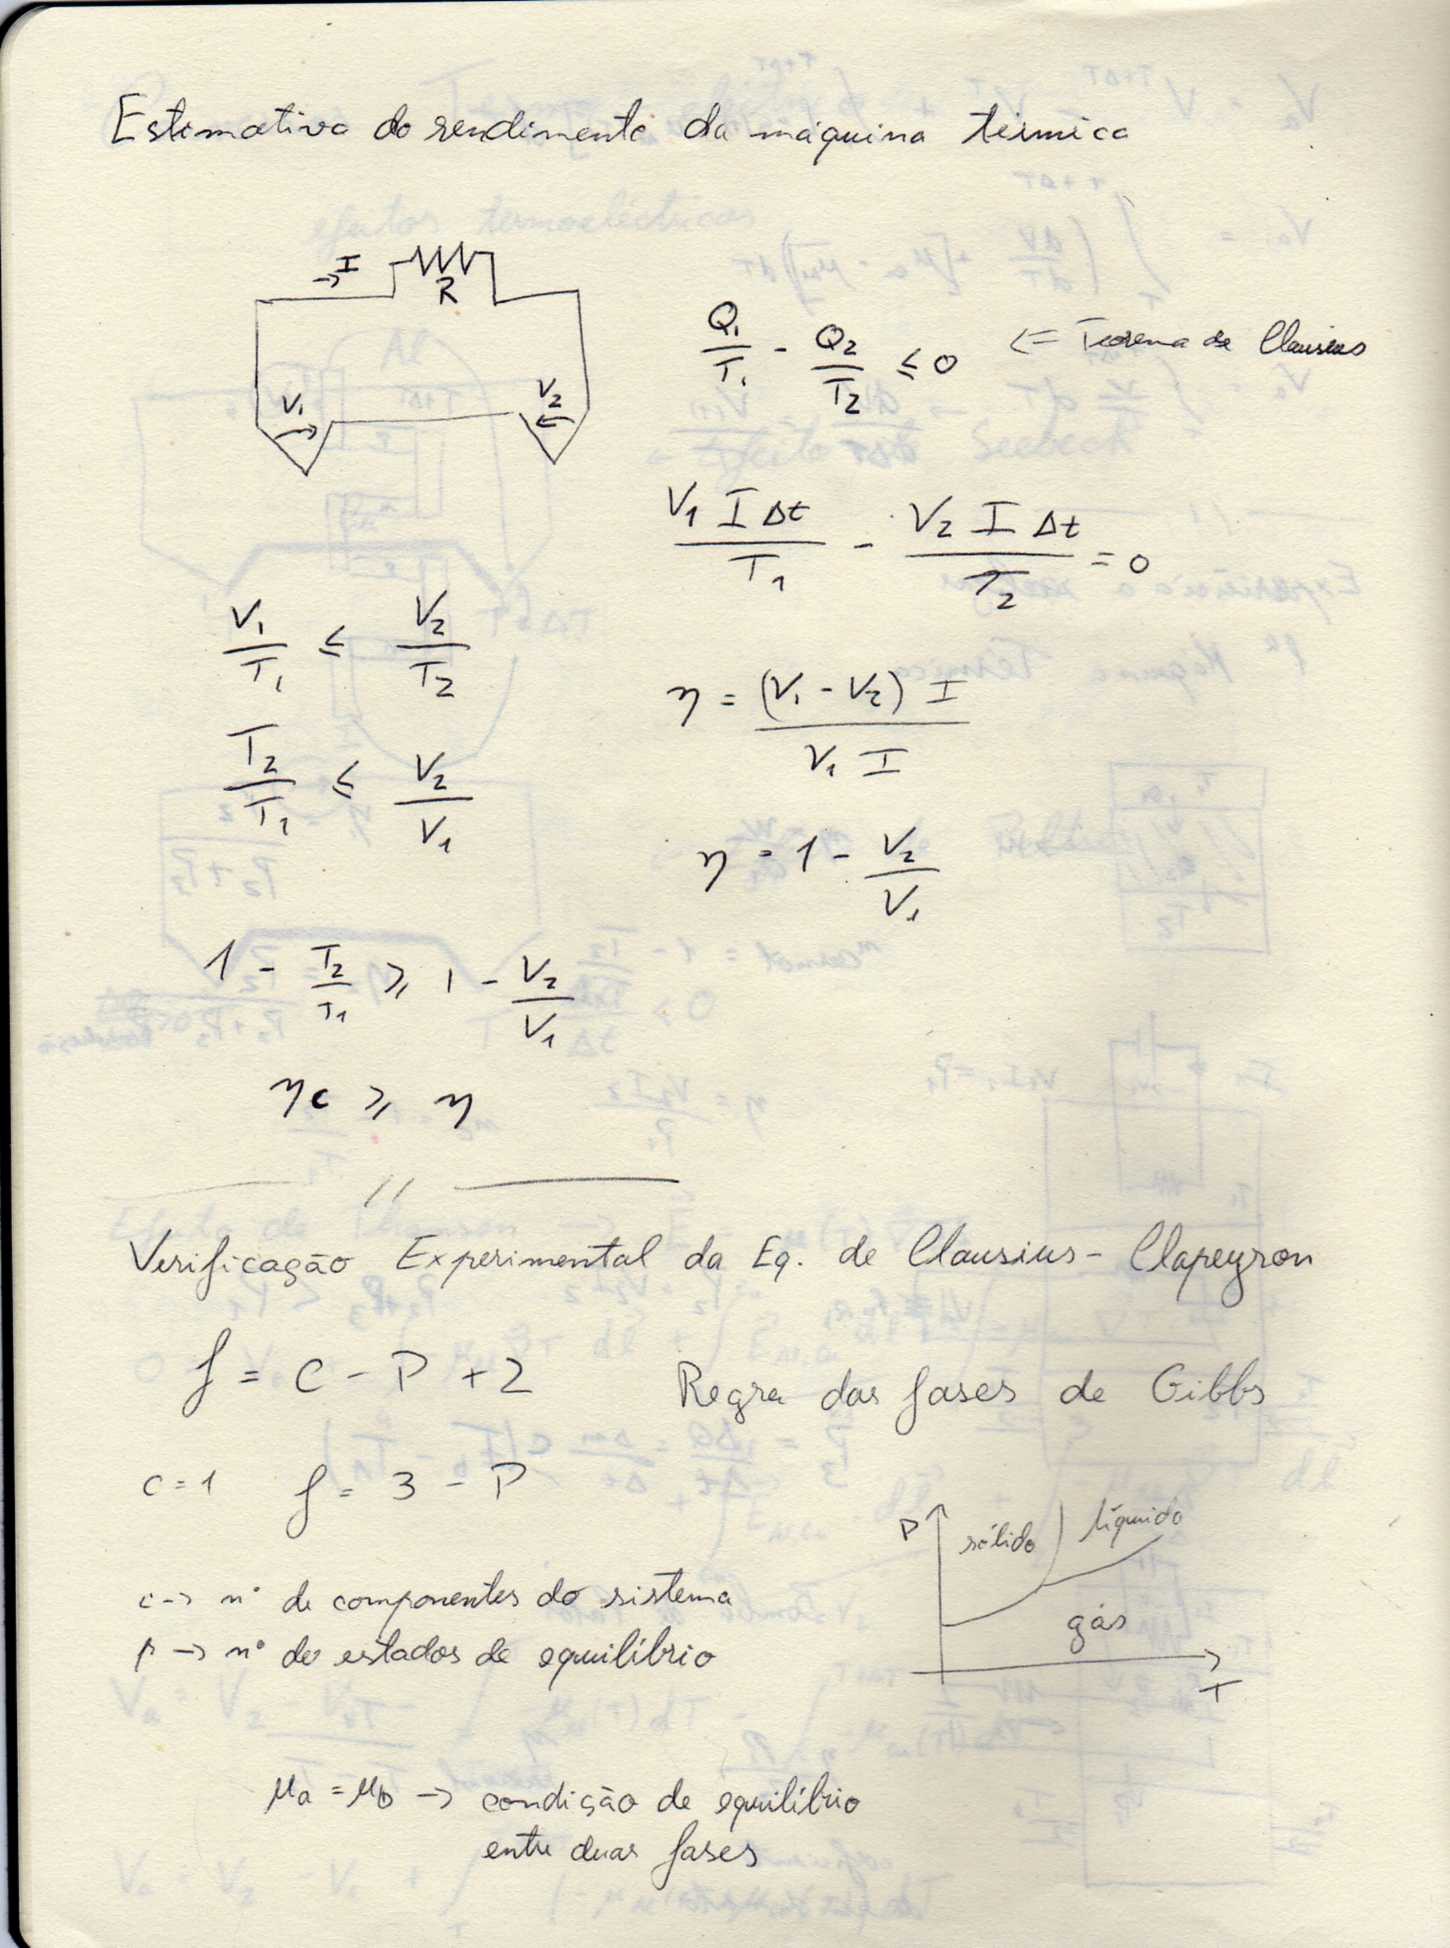 Estimativa do rendimento da máquina térmica
I
R
V₁
V₂
Q₁/T₁ - Q₂/T₂ ≤ 0 <= Teorema de Clausius
V₁ I Δt / T₁ - V₂ I Δt / T₂ = 0
V₁/T₁ ≤ V₂/T₂
η = (V₁ - V₂) I / V₁ I
T₂/T₁ ≤ V₂/V₁
η = 1 - V₂/V₁
1 - T₂/T₁ ≥ 1 - V₂/V₁
ηc ≥ η
//
Verificação Experimental da Eq. de Clausius-Clapeyron
f = C - P + 2 Regra das fases de Gibbs
c = 1 f = 3 - P
P
sólido
líquido
gás
T
c -> nº de componentes do sistema
p -> nº de estados de equilíbrio
μa = μb -> condição de equilíbrio
entre duas fases